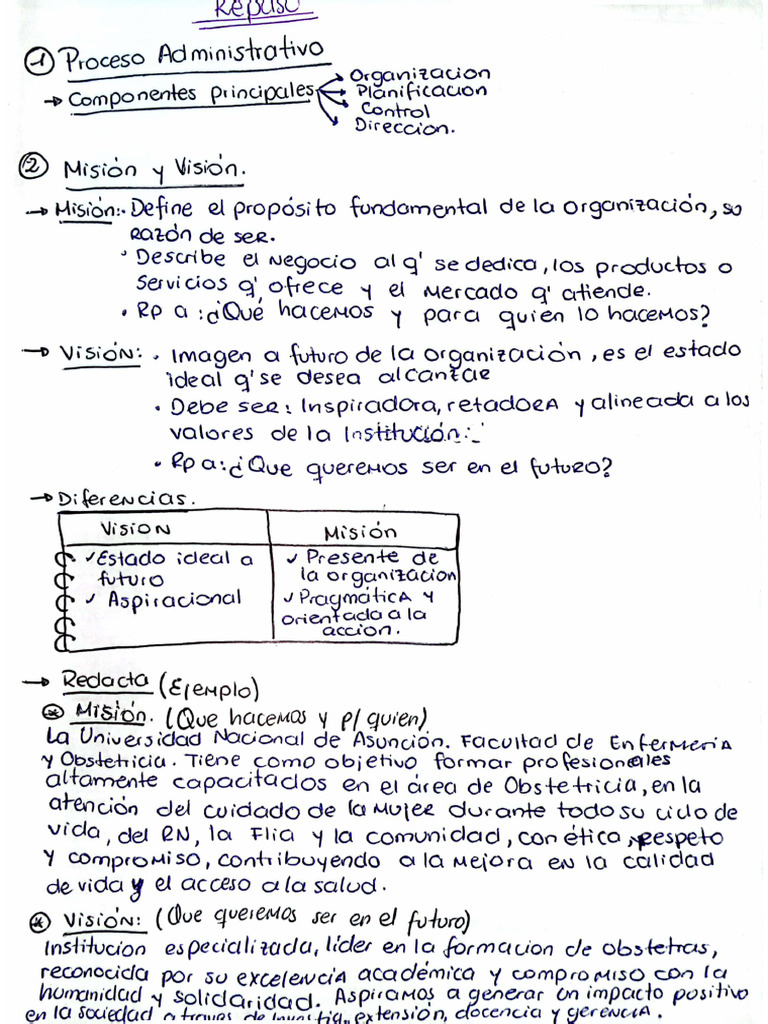 Repaso
1 Proceso Administrativo
→ Componentes principales → Organizacion
→ Planificacion
→ Control
→ Direccion.
2 Misión y Visión.
→ Misión:· Define el propósito fundamental de la organización, su
razón de ser.
· Describe el negocio al q' se dedica, los productos o
servicios q' ofrece y el mercado q' atiende.
• Rp a: ¿Qué hacemos y para quien lo hacemos?
→ Visión: • Imagen a futuro de la organización, es el estado
ideal q' se desea alcanzar
• Debe ser: Inspiradora, retadora y alineada a los
valores de la Institución.
• Rp a: ¿Que queremos ser en el futuro?
→ Diferencias.
Vision
Misión
✓ Estado ideal a
futuro
✓ Aspiracional
✓ Presente de
la organizacion
✓ Pragmática y
orientada a la
accion.
→ Redacta (Ejemplo)
* Misión. (Que hacemos y p/ quien)
La Universidad Nacional de Asunción. Facultad de Enfermeria
y Obstetricia. Tiene como objetivo formar profesionales
altamente capacitados en el área de Obstetricia, en la
atención del cuidado de la mujer durante todo su ciclo de
vida, del RN, la Flia y la comunidad, con ética, respeto
y compromiso, contribuyendo a la mejora en la calidad
de vida y el acceso a la salud.
* Visión: (Que queremos ser en el futuro)
Institucion especializada, líder en la formacion de obstetras,
reconocida por su excelencia académica y compromiso con la
humanidad y solidaridad. Aspiramos a generar un impacto positivo
en la sociedad a traves de investig. extensión, docencia y gerencia.